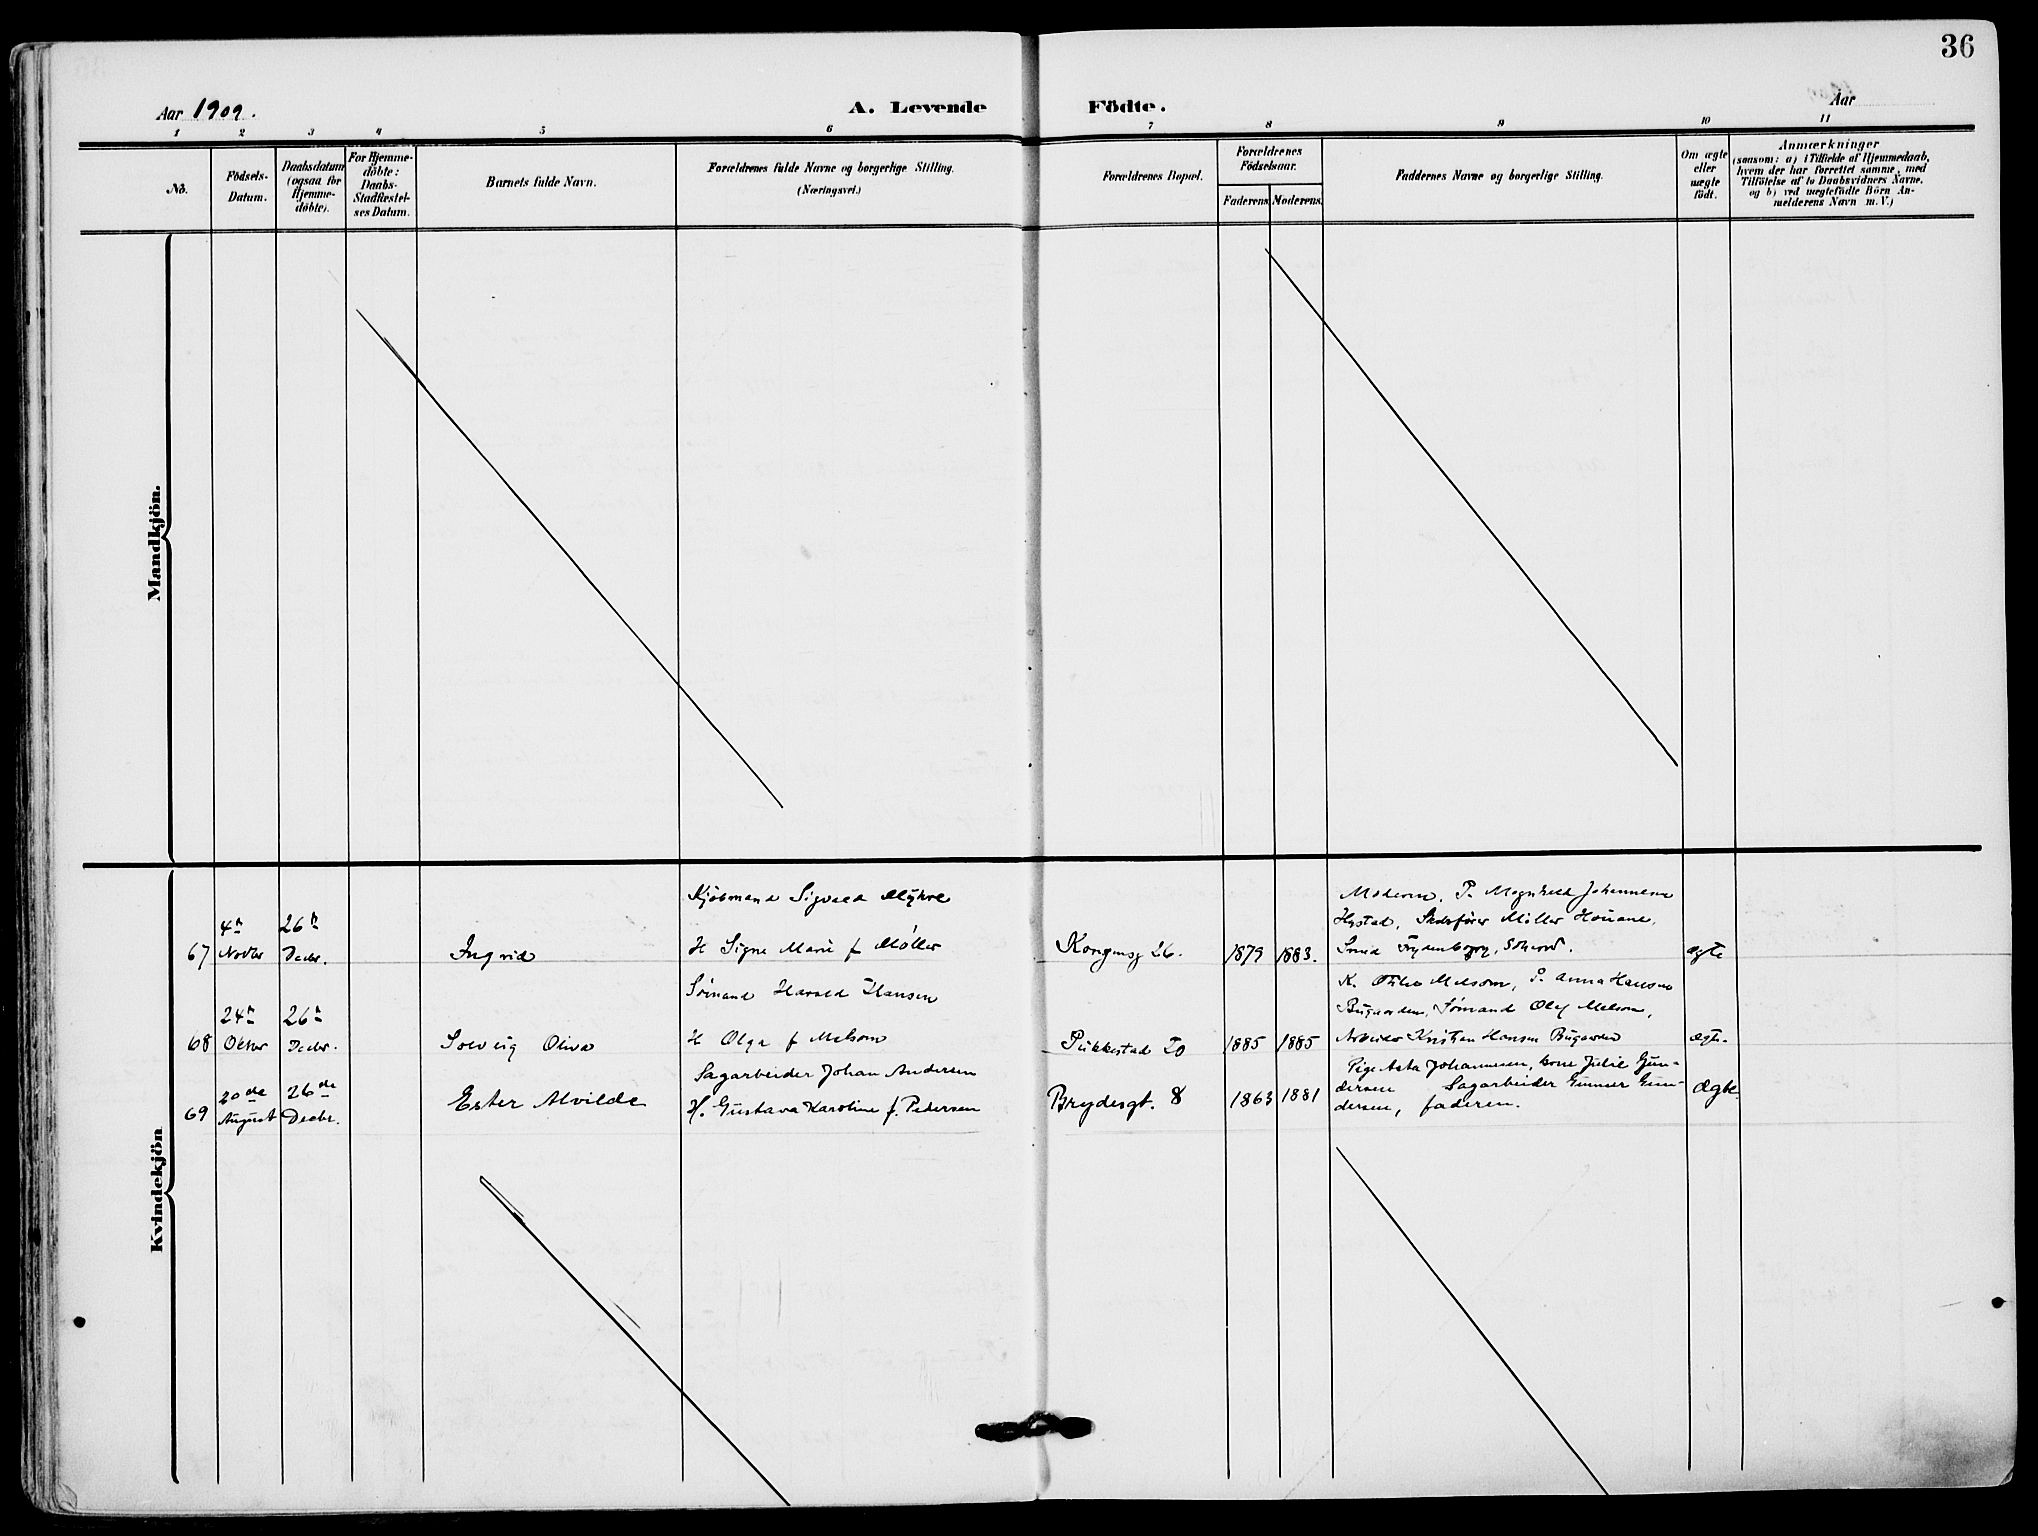 36
Aar 1909.
A. Levende Födte.
Aar
1 2 3 4 5 6 7 8 9 10 11
No.
Födsels-Datum.
Daabsdatum (ogsaa for Hjemme-döbte).
For Hjemme-döbte: Daabs-Stadfæstel-ses Datum.
Barnets fulde Navn.
Forældrenes fulde Navne og borgerlige Stilling.
(Næringsvei.)
Forældrenes Bopæl.
Forældrenes Födselsaar.
Faderens. Moderens.
Faddernes Navne og borgerlige Stilling.
Om ægte eller uægte födt.
Anmærkninger
(saasom: a) i Tilfælde af Hjemmedaab,
hvem der har forrettet samme, med
Tilföielse af to Daabsvidners Navne,
og b) ved uægtefödte Börn An-
melderens Navn m. V.)
Mandkjön.
Kvindekjön
67
4de Novbr
26de Decbr.
Ingrid
Kjøbmand Sigvald Myhre
H Signe Marie f Møller
Kongensg 26.
1879 1883.
Moderen, P. Magnhild Johannesen
Hystad, Skibsfører Møller
ægte
68
24de Oktbr
26de Decbr.
Solveig Oliva
Sømand Harald Hansen
H Olga f Melsom
Pukkestad
1885 1885
K. Melsom, P. Anna Hansen
Bugaarden, Sømand Olaf Melsom,
Arbeider Kristian Hansen Bugaarden
ægte
69
20de August
26de Decbr.
Ester Alvilde
Sagarbeider Johan Andersen
H. Gustava Karoline f. Pedersen
Brydesgt. 8
1863 1881
Pige Asta Johannesen, kone Julie Gun-
dersen Sagarbeider Gunner Gun-
dersen, faderen.
Ægte.